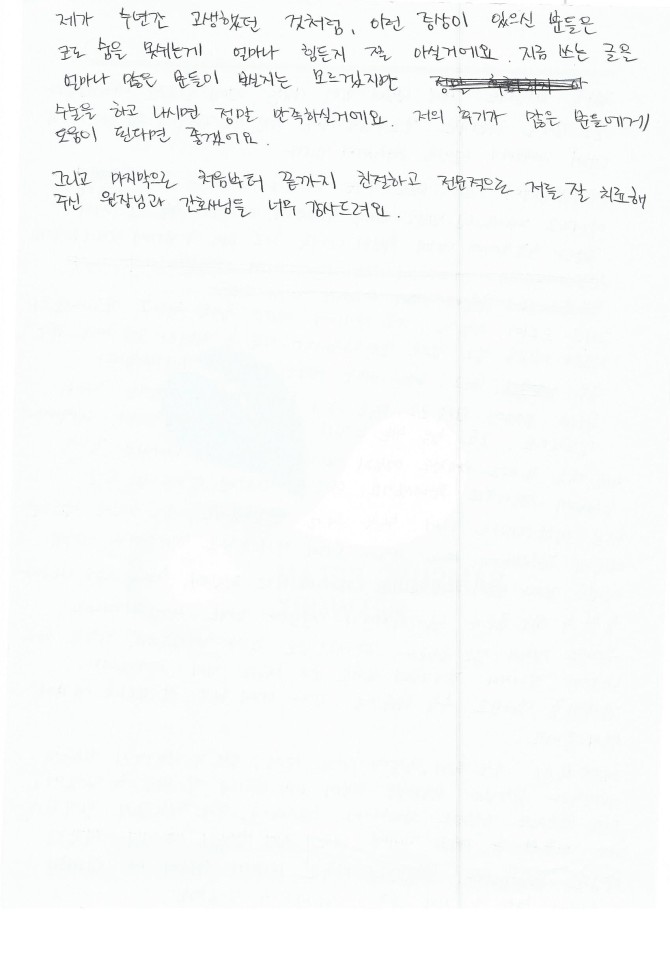 제가 수년간 고생했던 것처럼, 이런 증상이 있으신 분들은
코로 숨을 못쉬는게 얼마나 힘든지 잘 아실거에요. 지금 쓰는 글을
얼마나 많은 분들이 보실지는 모르겠지만
수술을 하고 나시면 정말 만족하실거에요. 저의 후기가 많은 분들에게
도움이 된다면 좋겠어요.
그리고 마지막으로 처음부터 끝까지 친절하고 전문적으로 저를 잘 치료해
주신 원장님과 간호사님들 너무 감사드려요.